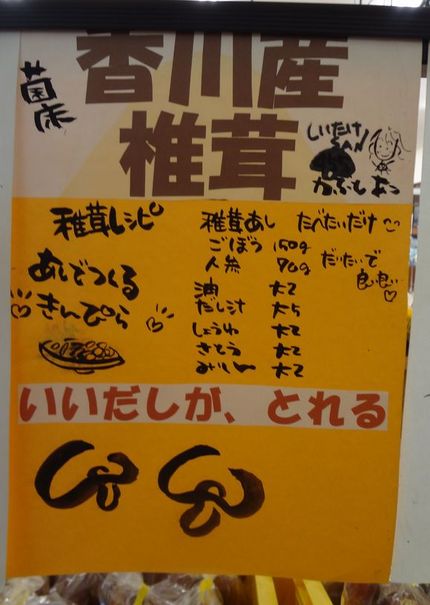 香川産
椎茸
菌床
しいたけ
SAN
椎茸レシピ
あしでつくる
きんぴら
椎茸あし たべたいだけ
ごぼう 150g
人参 70g
だいたいで
良い良い
油 大2
だし汁 大5
しょうゆ 大2
さとう 大2
みりん 大2
いいだしが、とれる